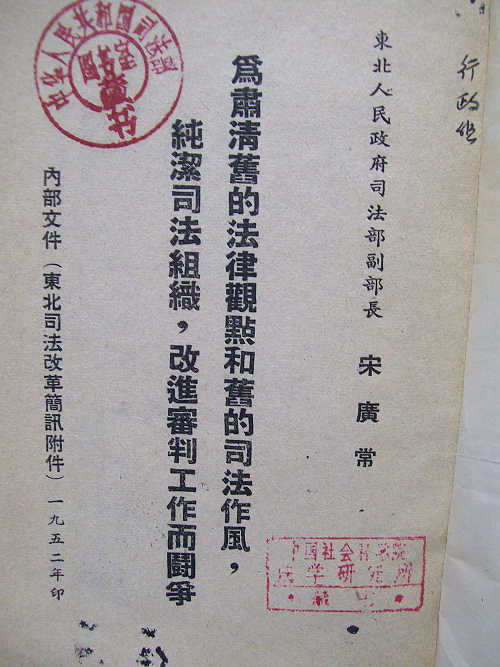 東北人民政府司法部副部長 宋廣常
爲肅清舊的法律觀點和舊的司法作風，
純潔司法組織，改進審判工作而鬪爭
內部文件（東北司法改革簡訊附件）一九五二年印
中华人民共和國司法部
圖書室
中国社会科学院
法学研究所
行政